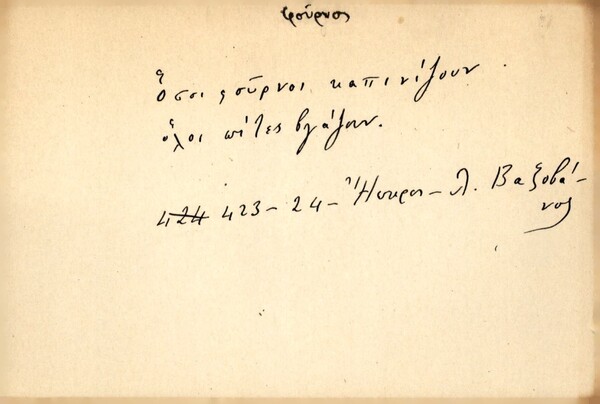 φούρνος
Ὅσοι φοῦρνοι καπινίζουν.
ὅλοι πίτες βγάζουν.
424 423-24-Ἤπειρος-Λ. Βαξοβά-
νος